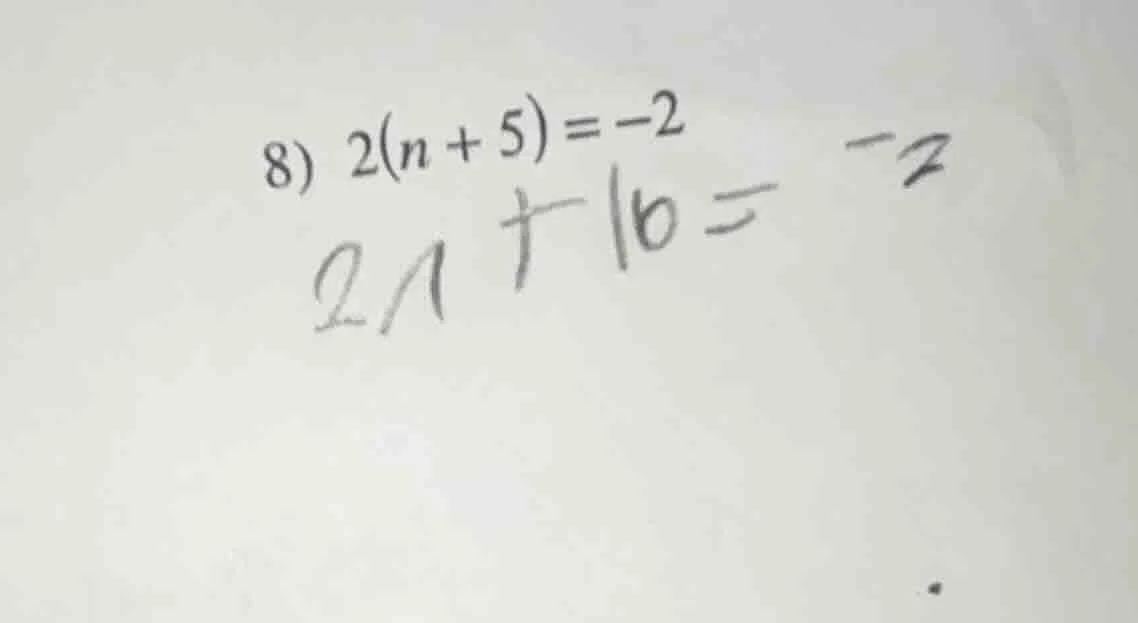 8) 2(n + 5) = −2
2n + 10 = -2